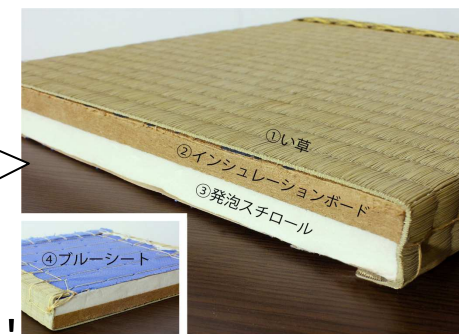 ①い草
②インシュレーションボード
③発泡スチロール
④ブルーシート